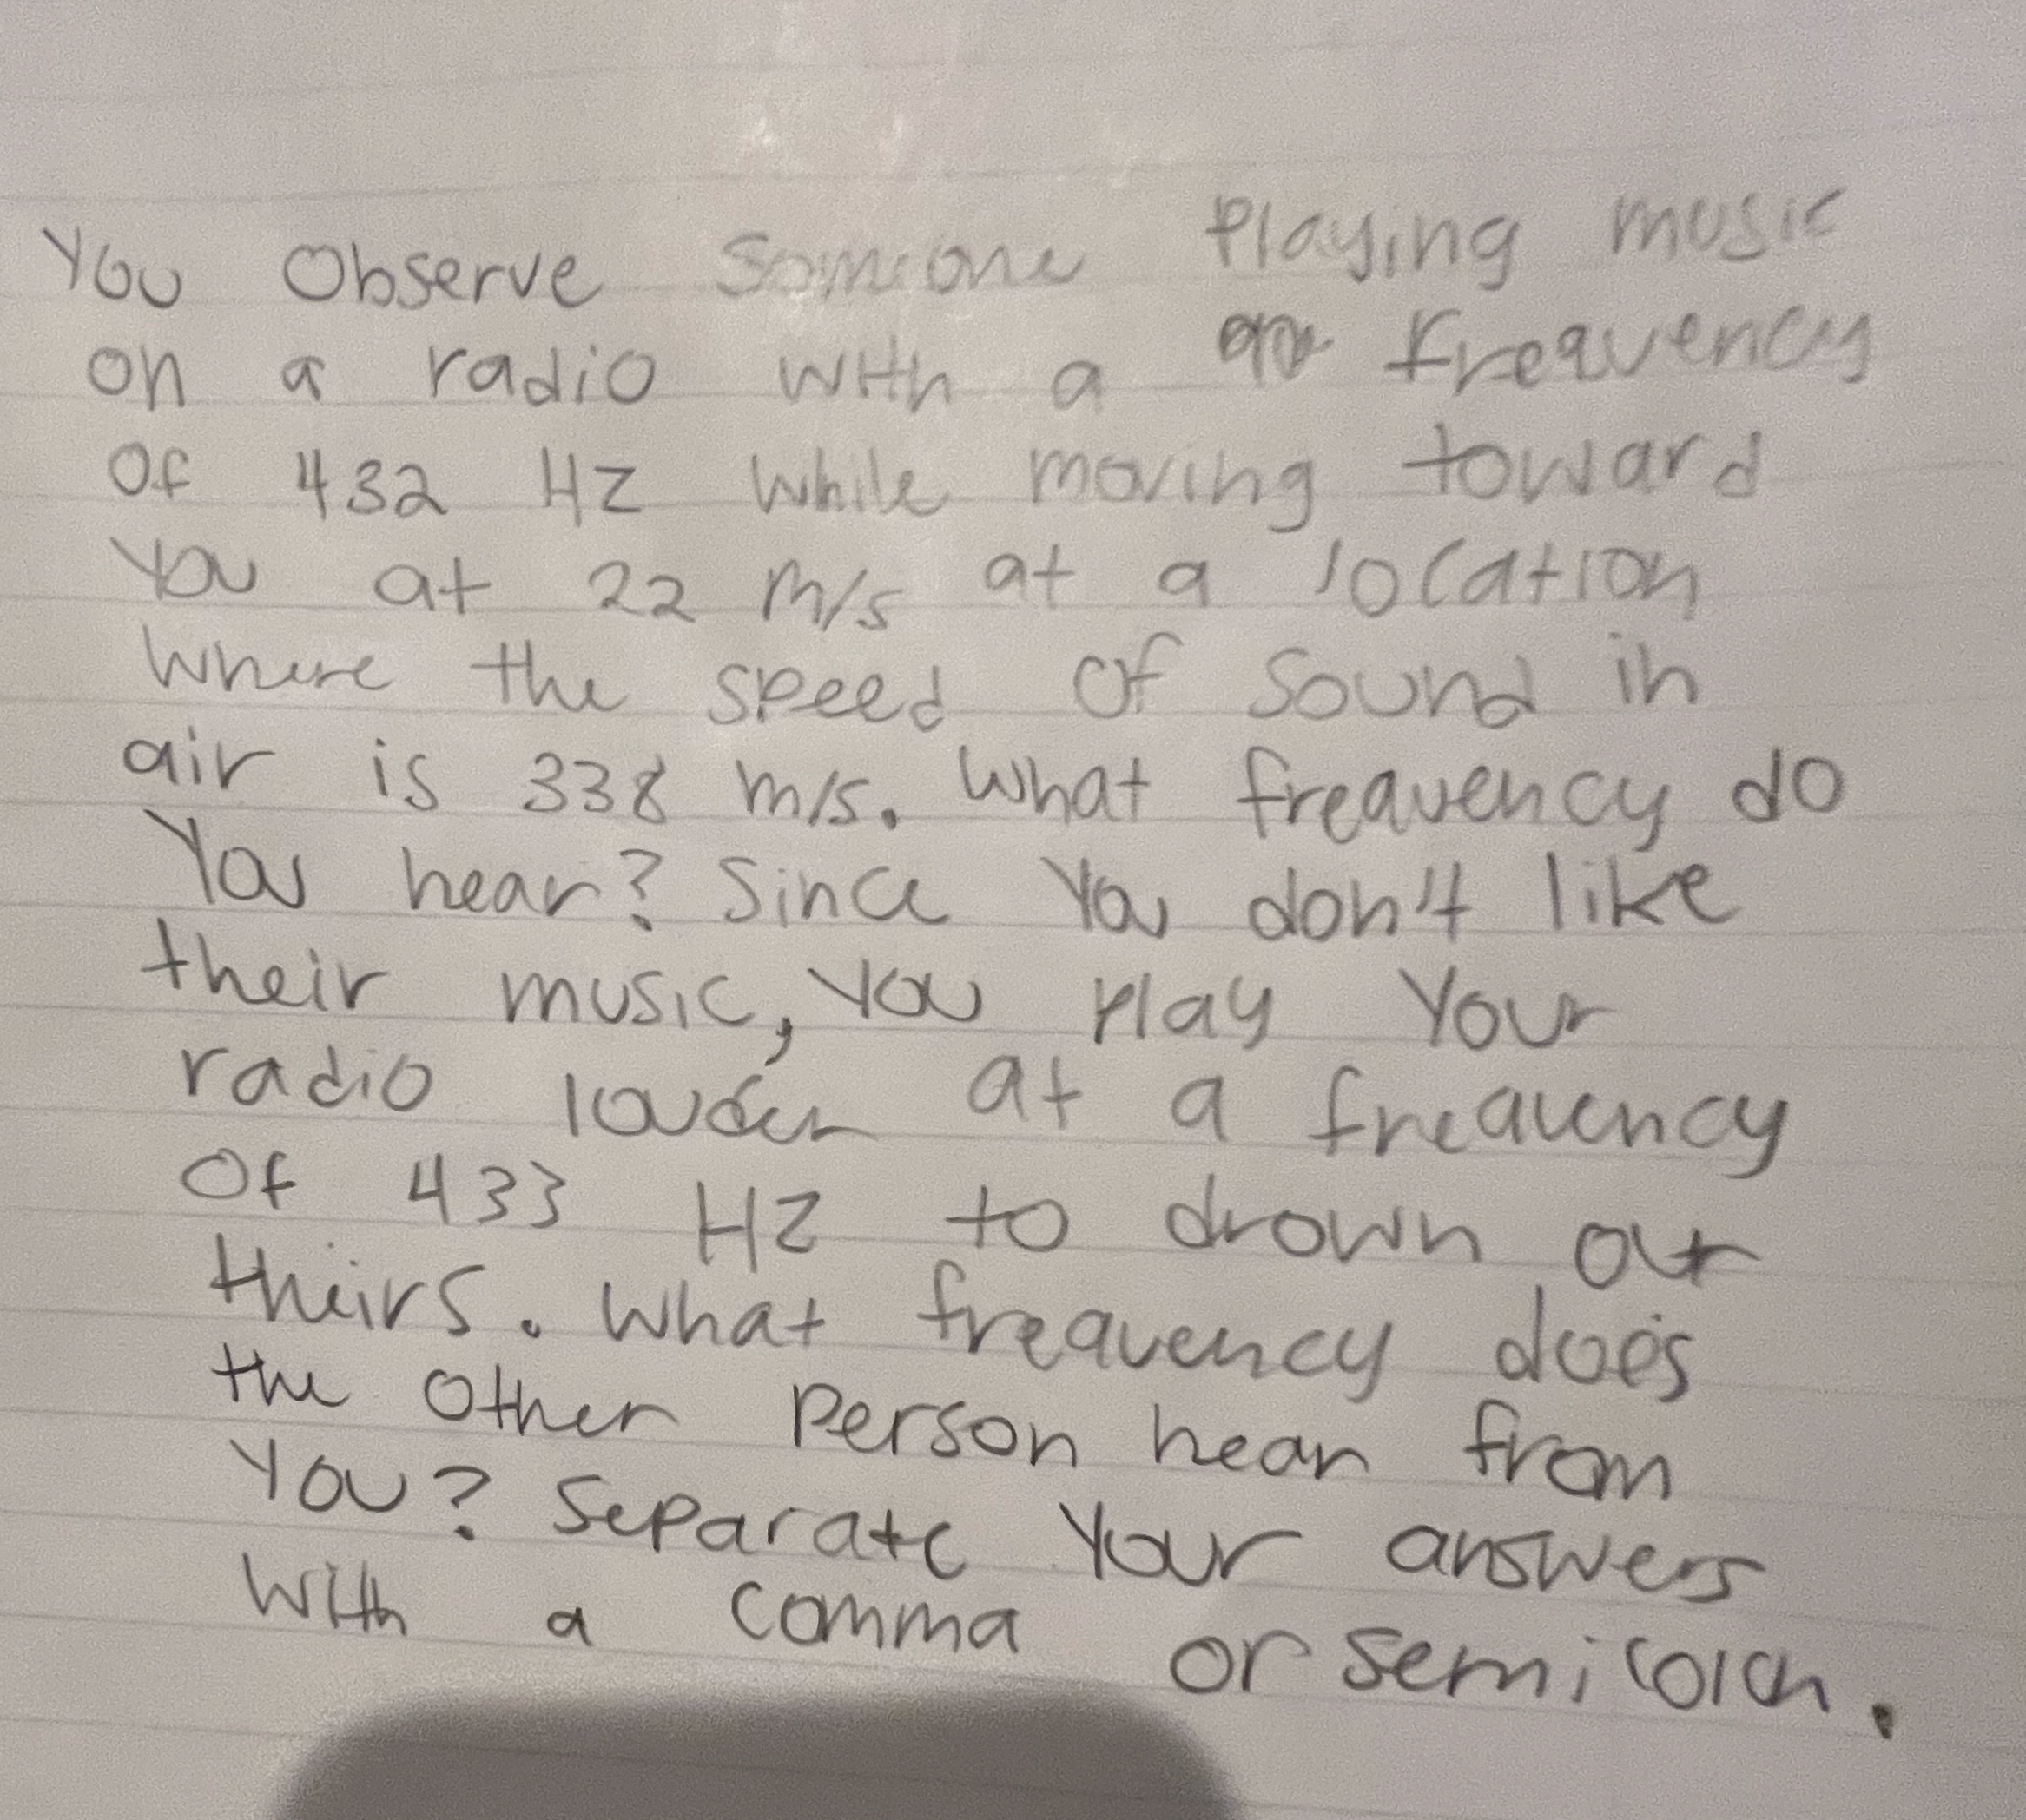 You observe someone playing music
on a radio with a frequency
of 432 Hz while moving toward
you at 22 m/s at a location
where the speed of sound in
air is 338 m/s. What frequency do
you hear? Since you don't like
their music, you play your
radio louder at a frequency
of 433 Hz to drown out
theirs. What frequency does
the other person hear from
you? Separate your answers
with a comma or semicolon.